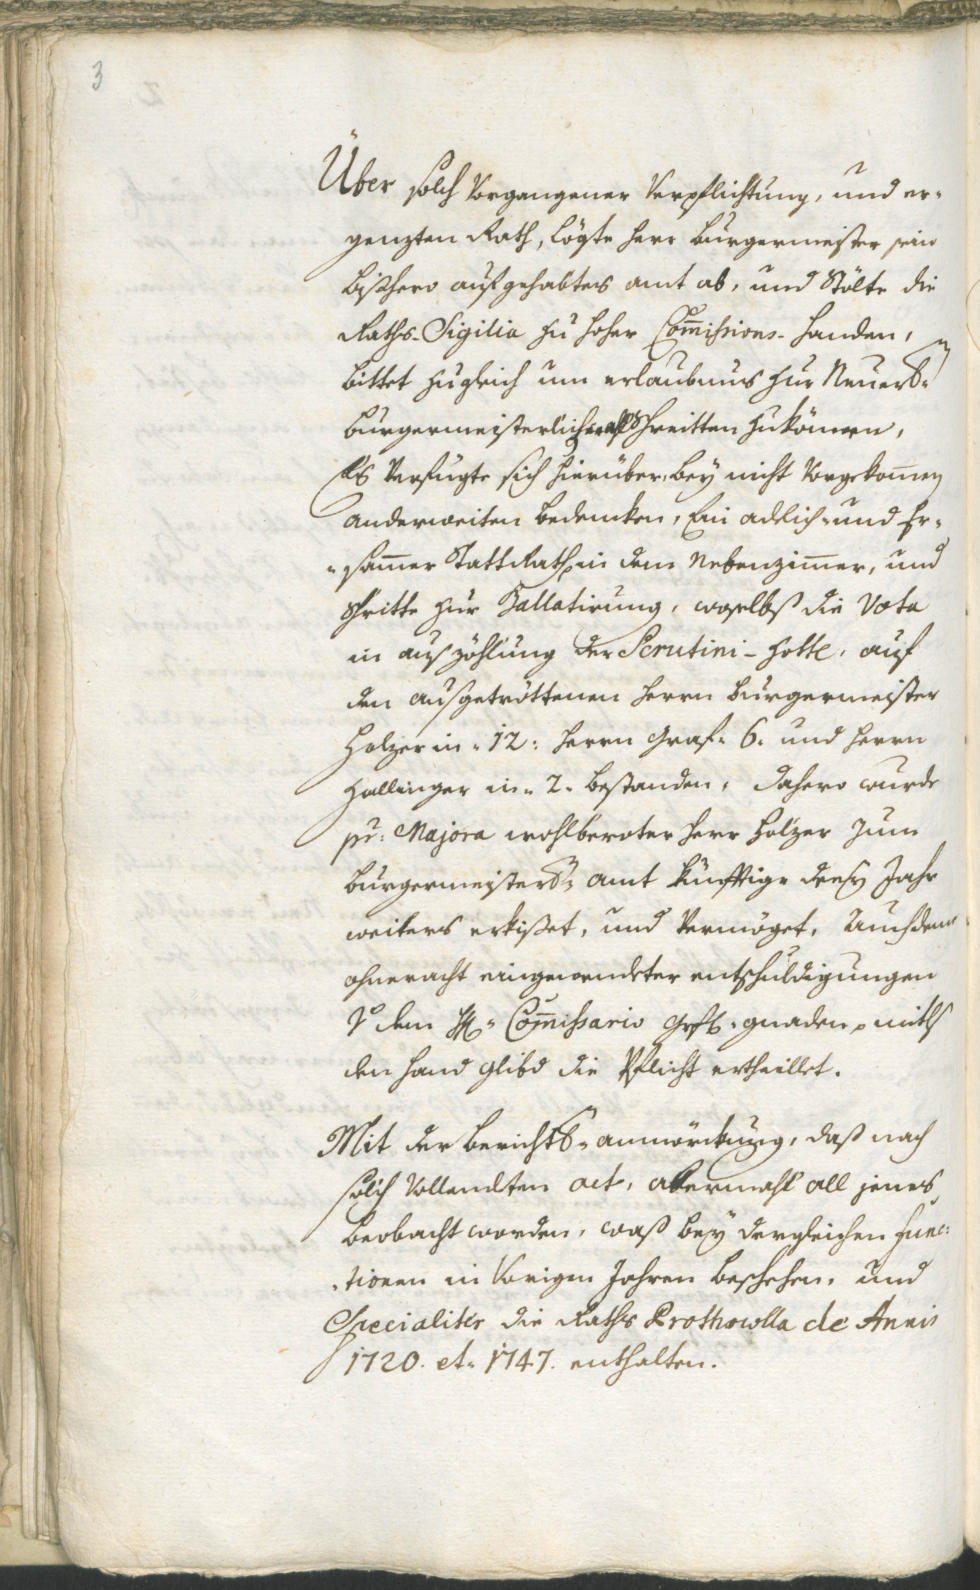 3
Über solch Vorgangener Verpflichtung, und er-
genzten Rath, lögte herr burgermeister sein
bißhero aufgehabtes amt ab, und stölte die
Raths-Sigilia zu hoher Com̄issions-handen,
bittet zugleich um erlaubnus zur Neuer
burgermeisterlichen schreitten zukönnen,
Es Verfügte sich hierüber, bey nicht Vorgekom̄en
anderweiten bedencken, Ein adelich- und Er-
-sam̄er StattRath in dem Nebenzim̄er, und
schritte zur Ballatirung, woselbst die Vota
in auszöhlung der Scrutini-Zötle, auf
den ausgetröttenen herrn burgermeister
Holzer in 12: herrn Graf 6. und herrn
Hallinger in 2. bestanden, dahero wurde
pr: Majora wohlberoter herr Holzer zum
burgermeisters amt künfftige drey Jahr
weiters erkißet, und Vermöget, auch deme
ohneracht eingewendeter entschuldigungen
Vo dem H: Com̄issario Grfl. gnaden, mitls
den hand glibd die Pflicht ertheillet.
Mit der berichts-anmörckung, daß nach
solch Vollendten act, abermahl all jenes
beobacht worden, waß bey dergleichen func-
-tionen in Vorigen Jahren beschehen, und
Specialiter die Raths Prothocolla de Annis
1720. et. 1747. enthalten.